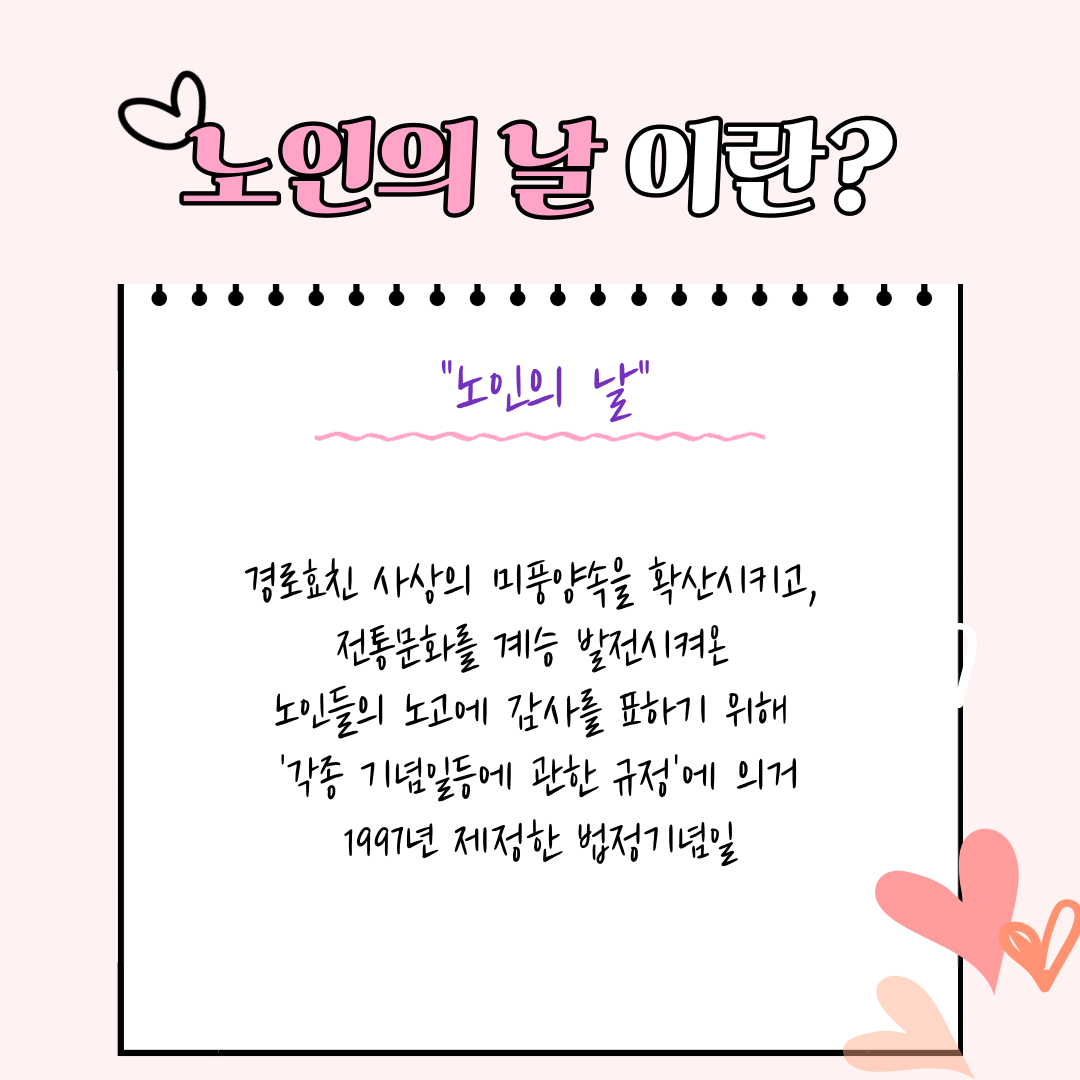 노인의 날 이란?
"노인의 날"
경로효친 사상의 미풍양속을 확산시키고,
전통문화를 계승 발전시켜온
노인들의 노고에 감사를 표하기 위해
'각종 기념일등에 관한 규정'에 의거
1997년 제정한 법정기념일